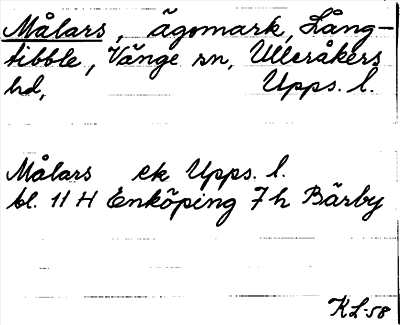 Målars, ägomark, Lång-
tibble, Vänge sn, Ulleråkers
hd, Upps. l.
Målars ek Upps. l.
bl. 11 H Enköping 7h Bärby
KL-58